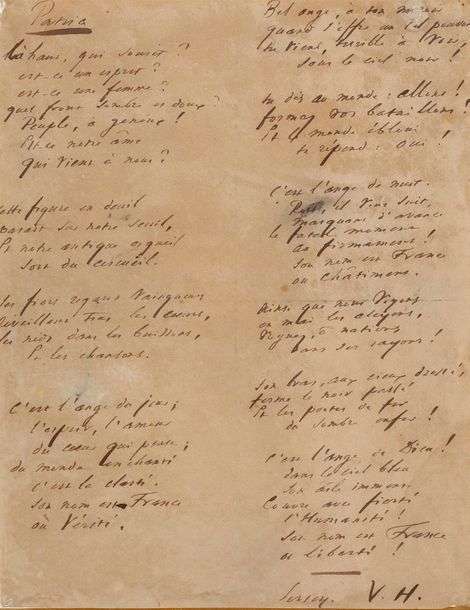 Patria
Là haut, qui sourit ?
est-ce un esprit ?
est-ce une femme ?
quel front sombre et doux ?
Peuple, à genoux !
Est-ce notre âme
qui vient à nous ?
Cette figure en deuil
Paraît sur notre seuil,
Et notre antique orgueil
Sort du cercueil.
Ses fiers regards vainqueurs
Réveillent tous les cœurs,
Les nids dans les buissons,
Et les chansons.
C'est l'ange du jour ;
l'espoir, l'amour
du cœur qui pense ;
du monde enchanté
c'est la clarté.
Son nom est France
ou Vérité.
Bel ange, à ton miroir
quand s'offre un vil pouvoir
tu viens, terrible à voir,
sous le ciel noir !
tu dis au monde : allons !
formez vos bataillons !
Et le monde ébloui
te répond : Oui !
C'est l'ange de nuit.
Rois, il vous suit,
marquant d'avance
le fatal moment
au firmament !
Son nom est France
ou Châtiment.
Ainsi que nous voyons
en mai les alcyons,
Voguez, ô nations
dans ses rayons !
Son bras, aux cieux dressé,
ferme le noir passé
Et les portes de fer
du sombre enfer !
C'est l'ange de Dieu !
dans le ciel bleu
Son aile immense
Couvre avec fierté
l'Humanité !
Son nom est France
ou liberté !
Jersey. V. H.